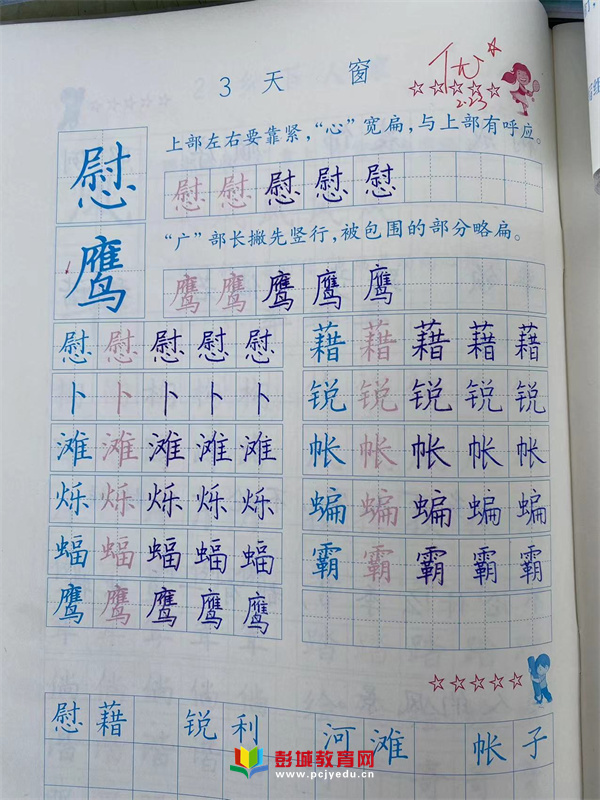 3 天 窗
优
2.23
慰 上部左右要靠紧，“心”宽扁，与上部有呼应。
慰 慰 慰 慰 慰
鹰 “广”部长撇先竖行，被包围的部分略扁。
鹰 鹰 鹰 鹰 鹰
慰 慰 慰 慰 慰 藉 藉 藉 藉 藉
卜 卜 卜 卜 卜 锐 锐 锐 锐 锐
滩 滩 滩 滩 滩 帐 帐 帐 帐 帐
烁 烁 烁 烁 烁 蝙 蝙 蝙 蝙 蝙
蝠 蝠 蝠 蝠 蝠 霸 霸 霸 霸 霸
鹰 鹰 鹰 鹰 鹰
慰 藉 锐 利 河 滩 帐 子
彭城教育网
www.pcjyedu.cn